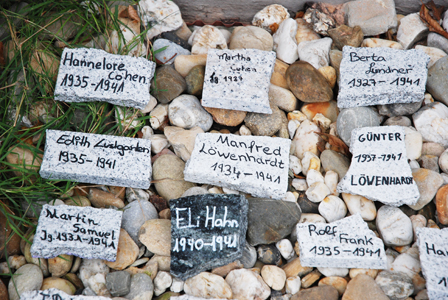 Hannelore
Cohen
1935-1941
Martha
Cohen
1927
Berta
1927-1941
Edith Lustgarten
1935-1941
Manfred
Löwenhardt
1934-1941
GÜNTER
1937-1941
LÖWENHARDT
Martin
Samuel
Jg 1931-1941
ELi Hahn
1940-1941
Rolf Frank
1935-1941